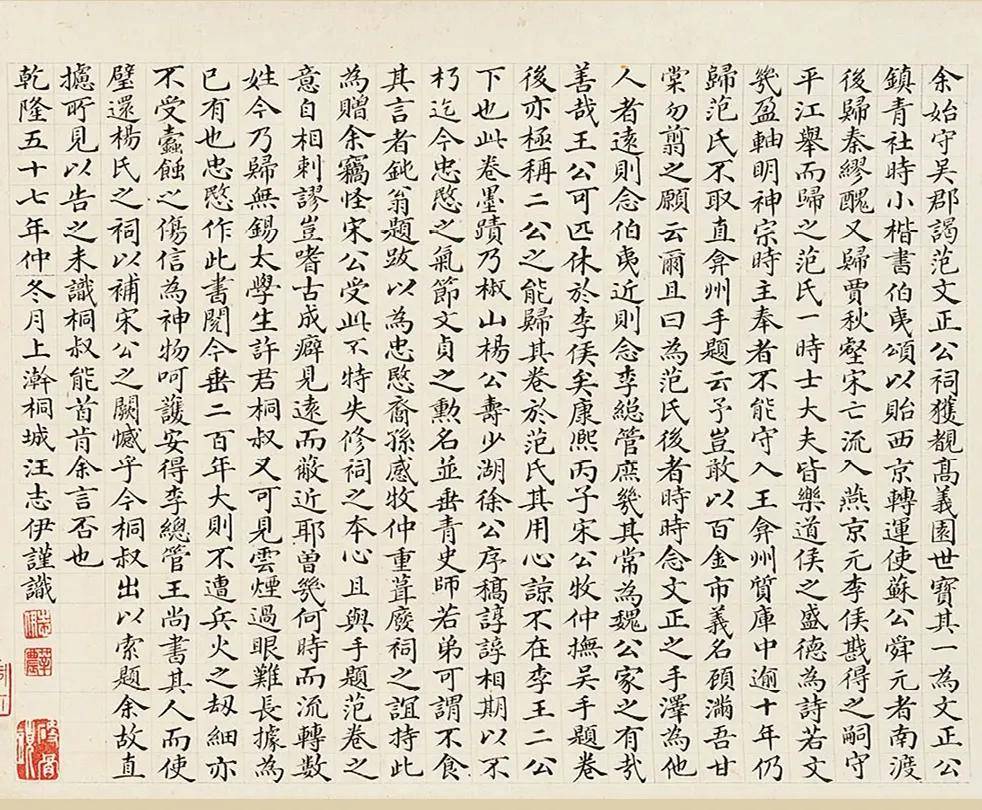 余始守吳郡謁范文正公祠獲覩髙義園世寶其一為文正公
鎮青社時小楷書伯夷頌以貽西京轉運使蘇公舜元者南渡
後歸秦繆醜又歸賈秋壑宋亡流入燕京元李侯戡得之嗣守
平江舉而歸之范氏一時士大夫皆樂道侯之盛德為詩若文
幾盈軸明神宗時主奉者不能守入王弇州質庫中逾十年仍
歸范氏不取直弇州手題云予豈敢以百金市義名顧滿吾甘
棠勿翦之願云爾且曰為范氏後者時時念文正之手澤為他
人者遠則念伯夷近則念李總管庶幾其常為魏公家之有哉
善哉王公可匹休於李侯矣康熙丙子宋公牧仲撫吳手題卷
後亦極稱二公之能歸其卷於范氏其用心諒不在李王二公
下也此卷墨蹟乃椒山楊公壽少湖徐公序稿諄諄相期以不
朽迄今忠愍之氣節文貞之勳名並垂青史師若弟可謂不食
其言者鈍翁題跋以為忠愍裔孫感牧仲重葺廢祠之誼持此
為贈余竊怪宋公受此不特失修祠之本心且與手題范卷之
意自相刺謬豈嗜古成癖見遠而蔽近耶曽幾何時而流轉數
姓今乃歸無錫太學生許君桐叔又可見雲煙過眼難長據為
已有也忠愍作此書閱今垂二百年大則不遭兵火之刼細亦
不受蠹蝕之傷信為神物呵護安得李總管王尚書其人而使
璧還楊氏之祠以補宋公之闕憾乎今桐叔出以索題余故直
攄所見以告之未識桐叔能首肯余言否也
乾隆五十七年仲冬月上澣桐城汪志伊謹識